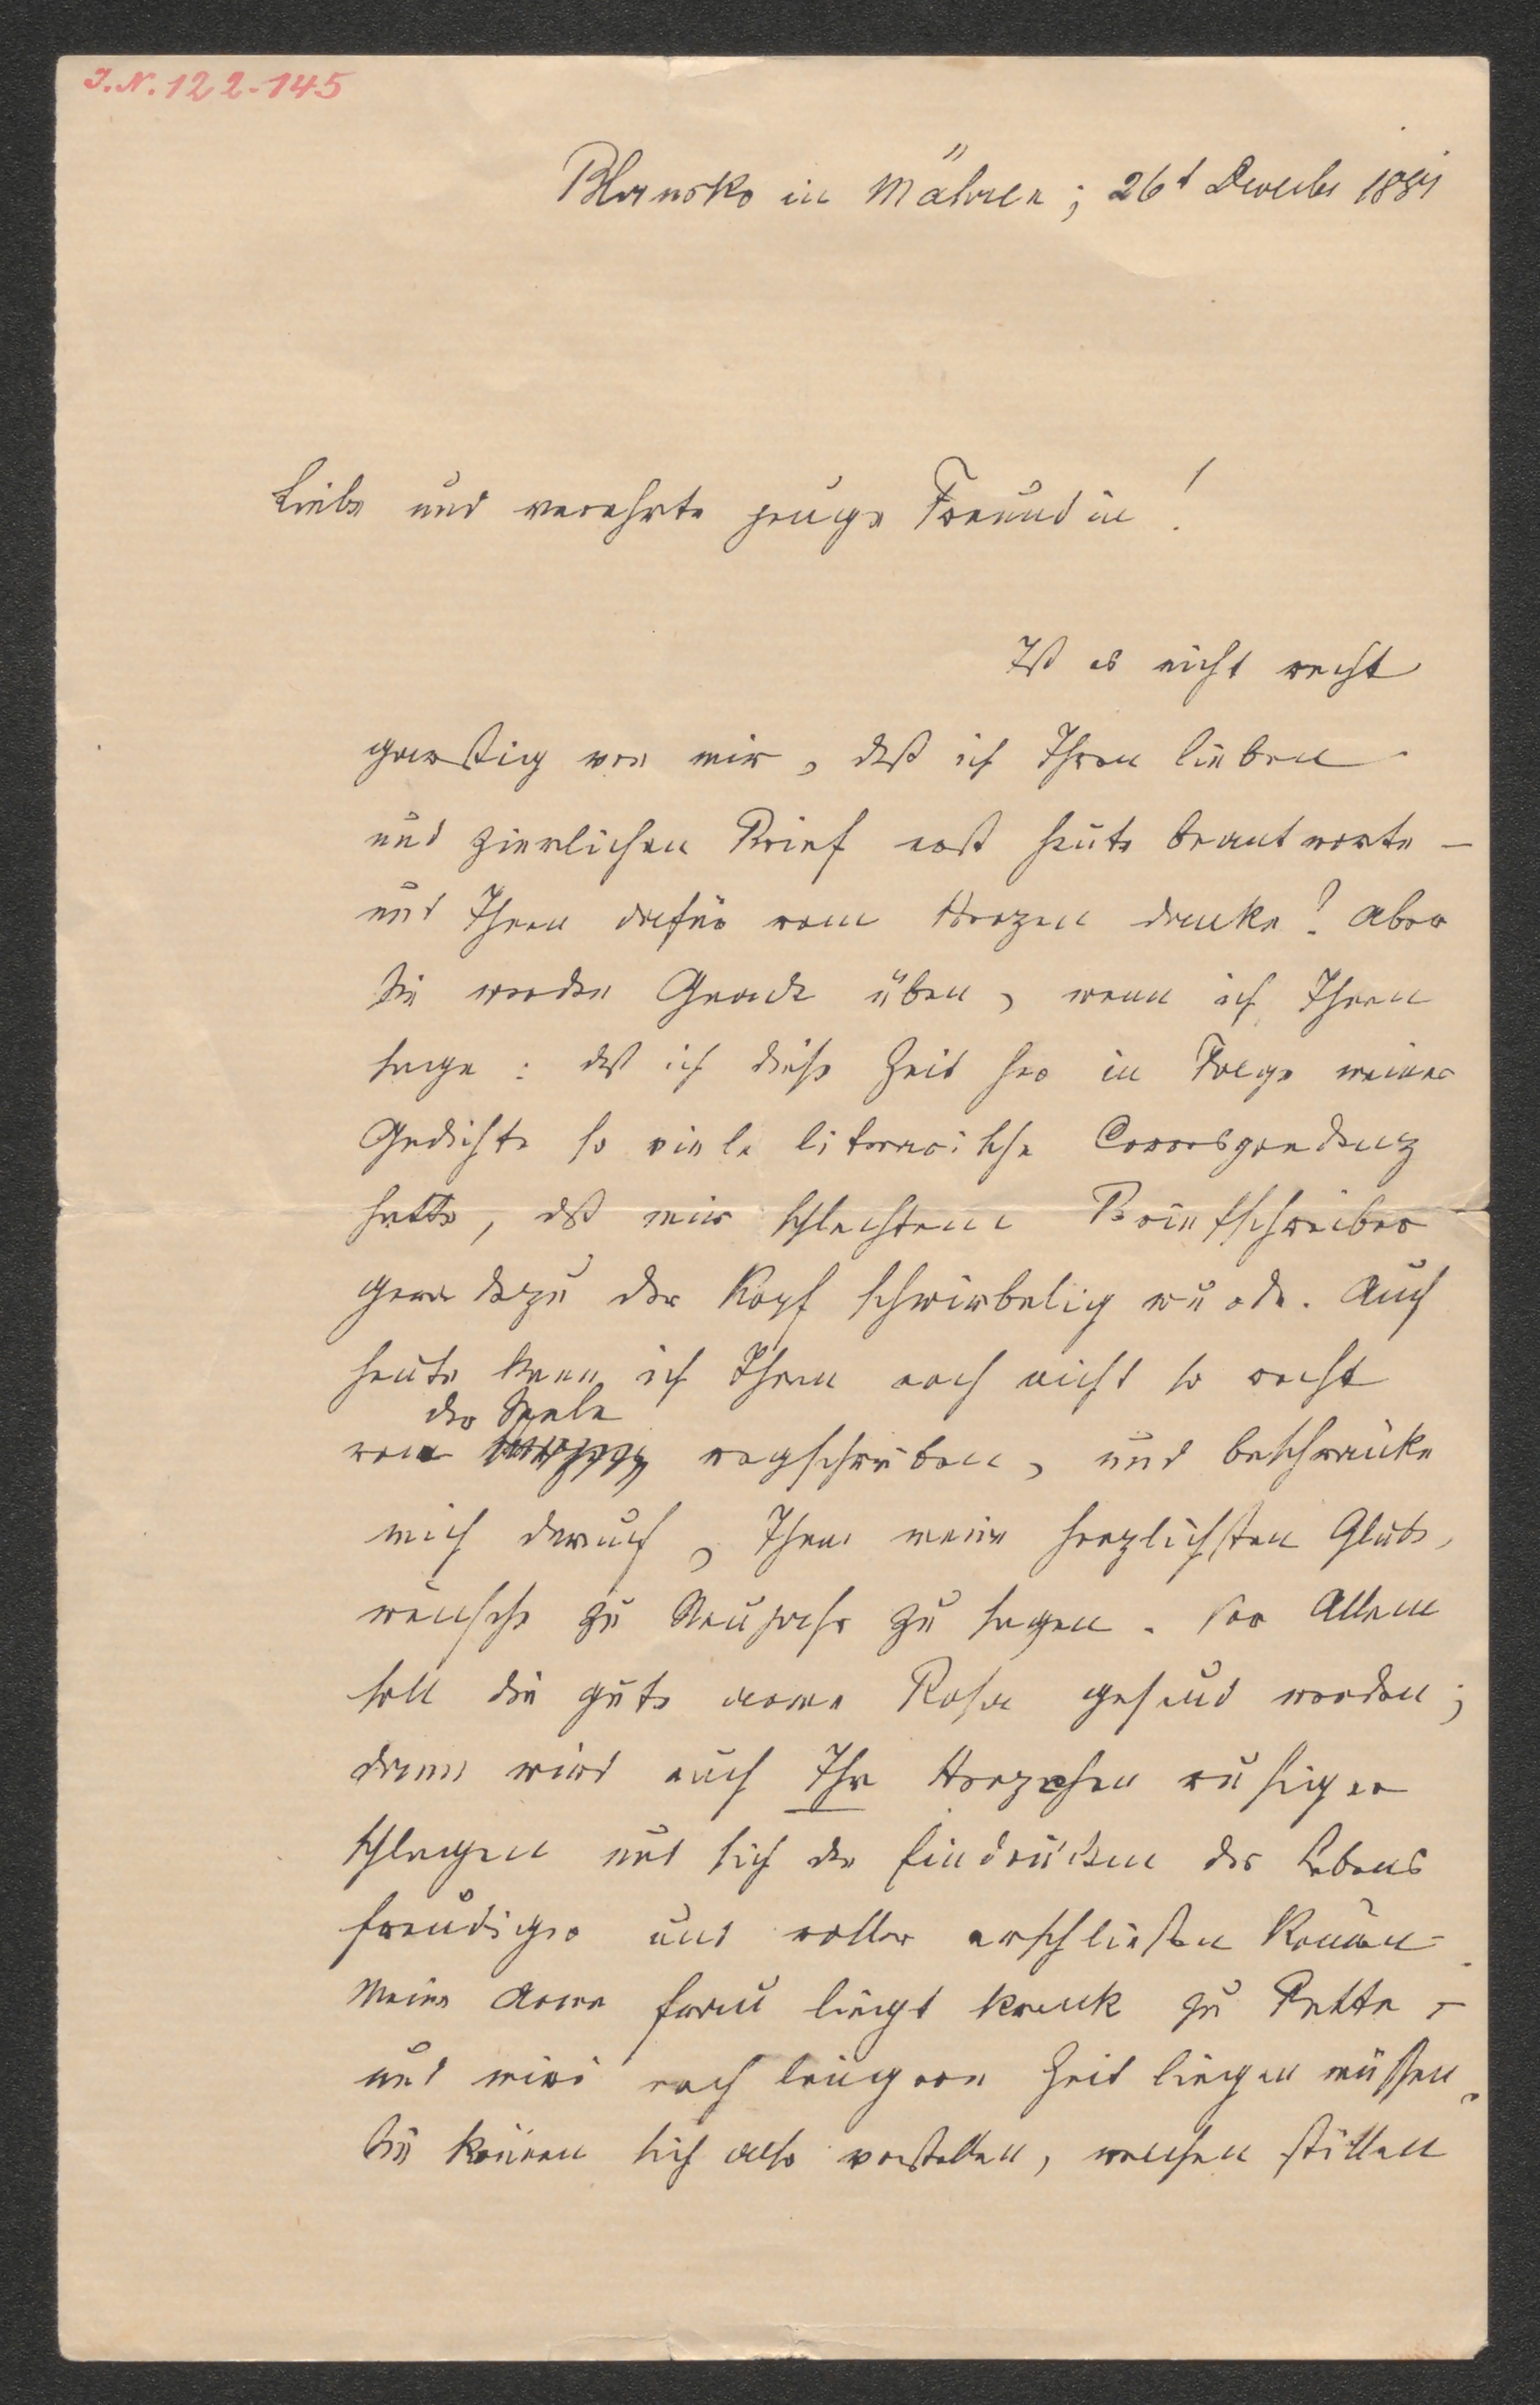 I.N. 122.145
Blansko in Mähren; 26t Decembr 1881
Liebe und verehrte junge Freundin!
Ist es nicht recht
garstig von mir, daß ich Ihren lieben
und zierlichen Brief erst heute beantworte –
und Ihnen dafür vom Herzen danke? Aber
Sie werden Gnade üben, wenn ich Ihnen
sage: daß ich diese Zeit her in Folge meiner
Gedichte so viele literarische Correspondenz
hatte, daß mir schlechtem Briefschreiber
geradezu der Kopf schwirbelig wurde. Auch
heute kann ich Ihnen noch nicht so recht
der Seele
von wegschreiben, und beschränke
mich darauf, Ihnen meine herzlichsten Glück-
wünsche zu Neujahr zu sagen. Vor Allem
soll die gute arme Rosa gesund werden;
dann wird auch Ihr Herzchen ruhiger
schlagen und sich den Eindrücken des Lebens
freudiger und voller erschließen können.
Meine arme Frau liegt krank zu Bette –
und wird noch längere Zeit liegen müssen.
Sie können sich also vorstellen, welchen stillen